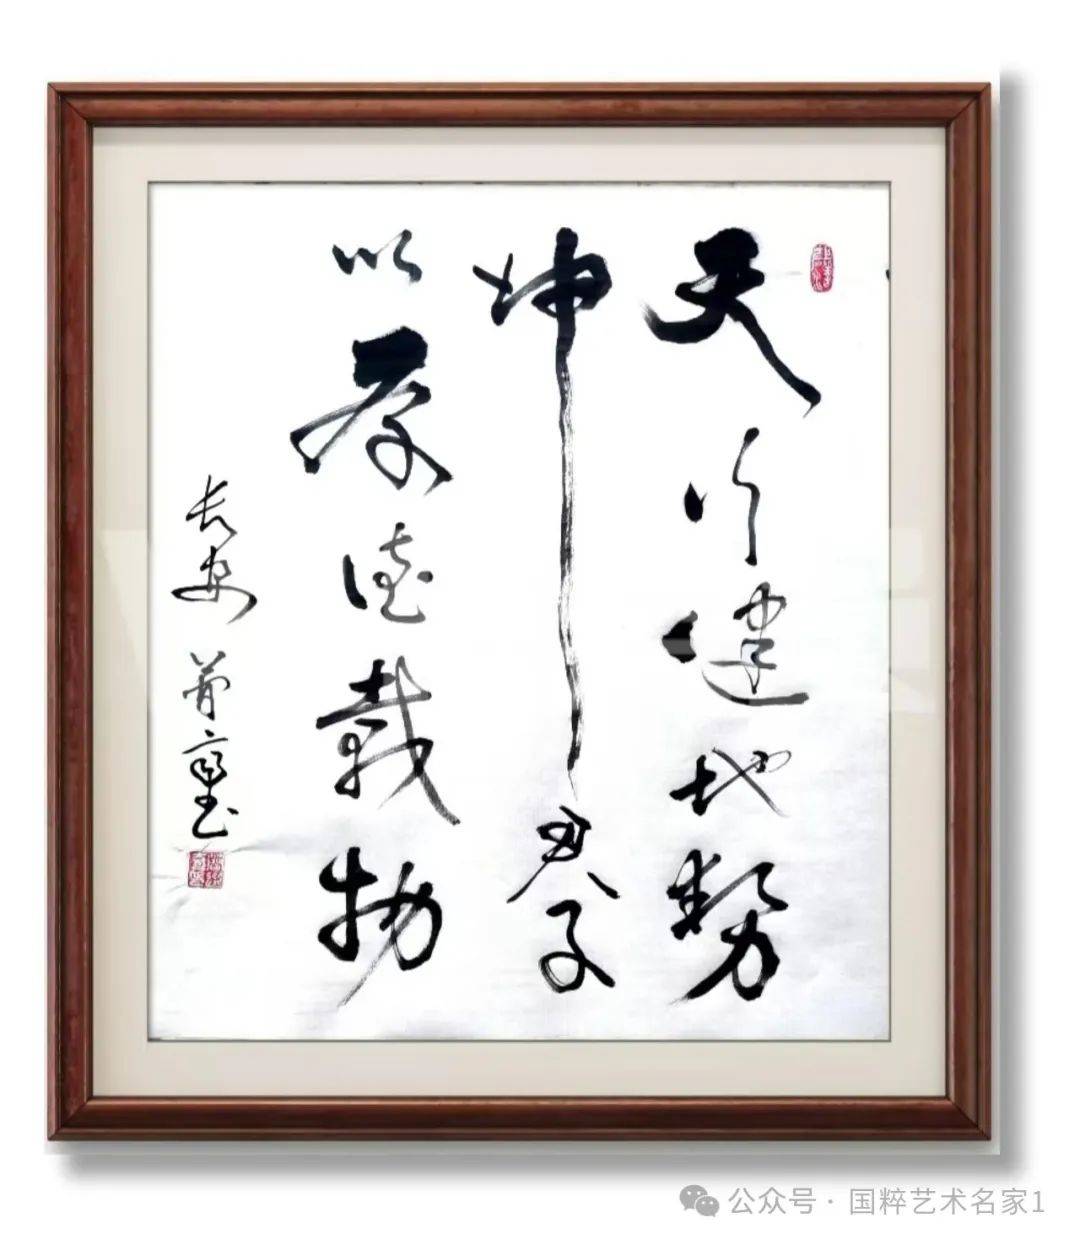 天行健地势
坤君子
以厚德载物
长安
公众号·国粹艺术名家1